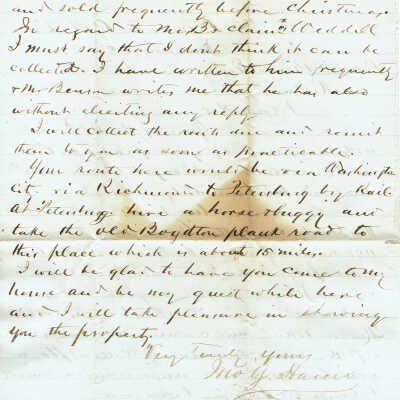 and sold frequently before Christmas.
In regard to Mr B's claim Weddell
I must say that I dont think it can be
collected. I have written to him frequently
& Mr Benson writes me that he has also
without eliciting any reply.
I will collect the rents due and remit
them to you as soon as practicable.
Your route here would be via Washington
City, via Richmond to Petersburg by Rail
At Petersburg hire a horse & buggy and
take the old Boydton plank road to
this place which is about 15 miles.
I will be glad to have you come to my
house and be my guest while here
and I will take pleasure in showing
you the property.
Very Truly Yours
Jno Y. Harris